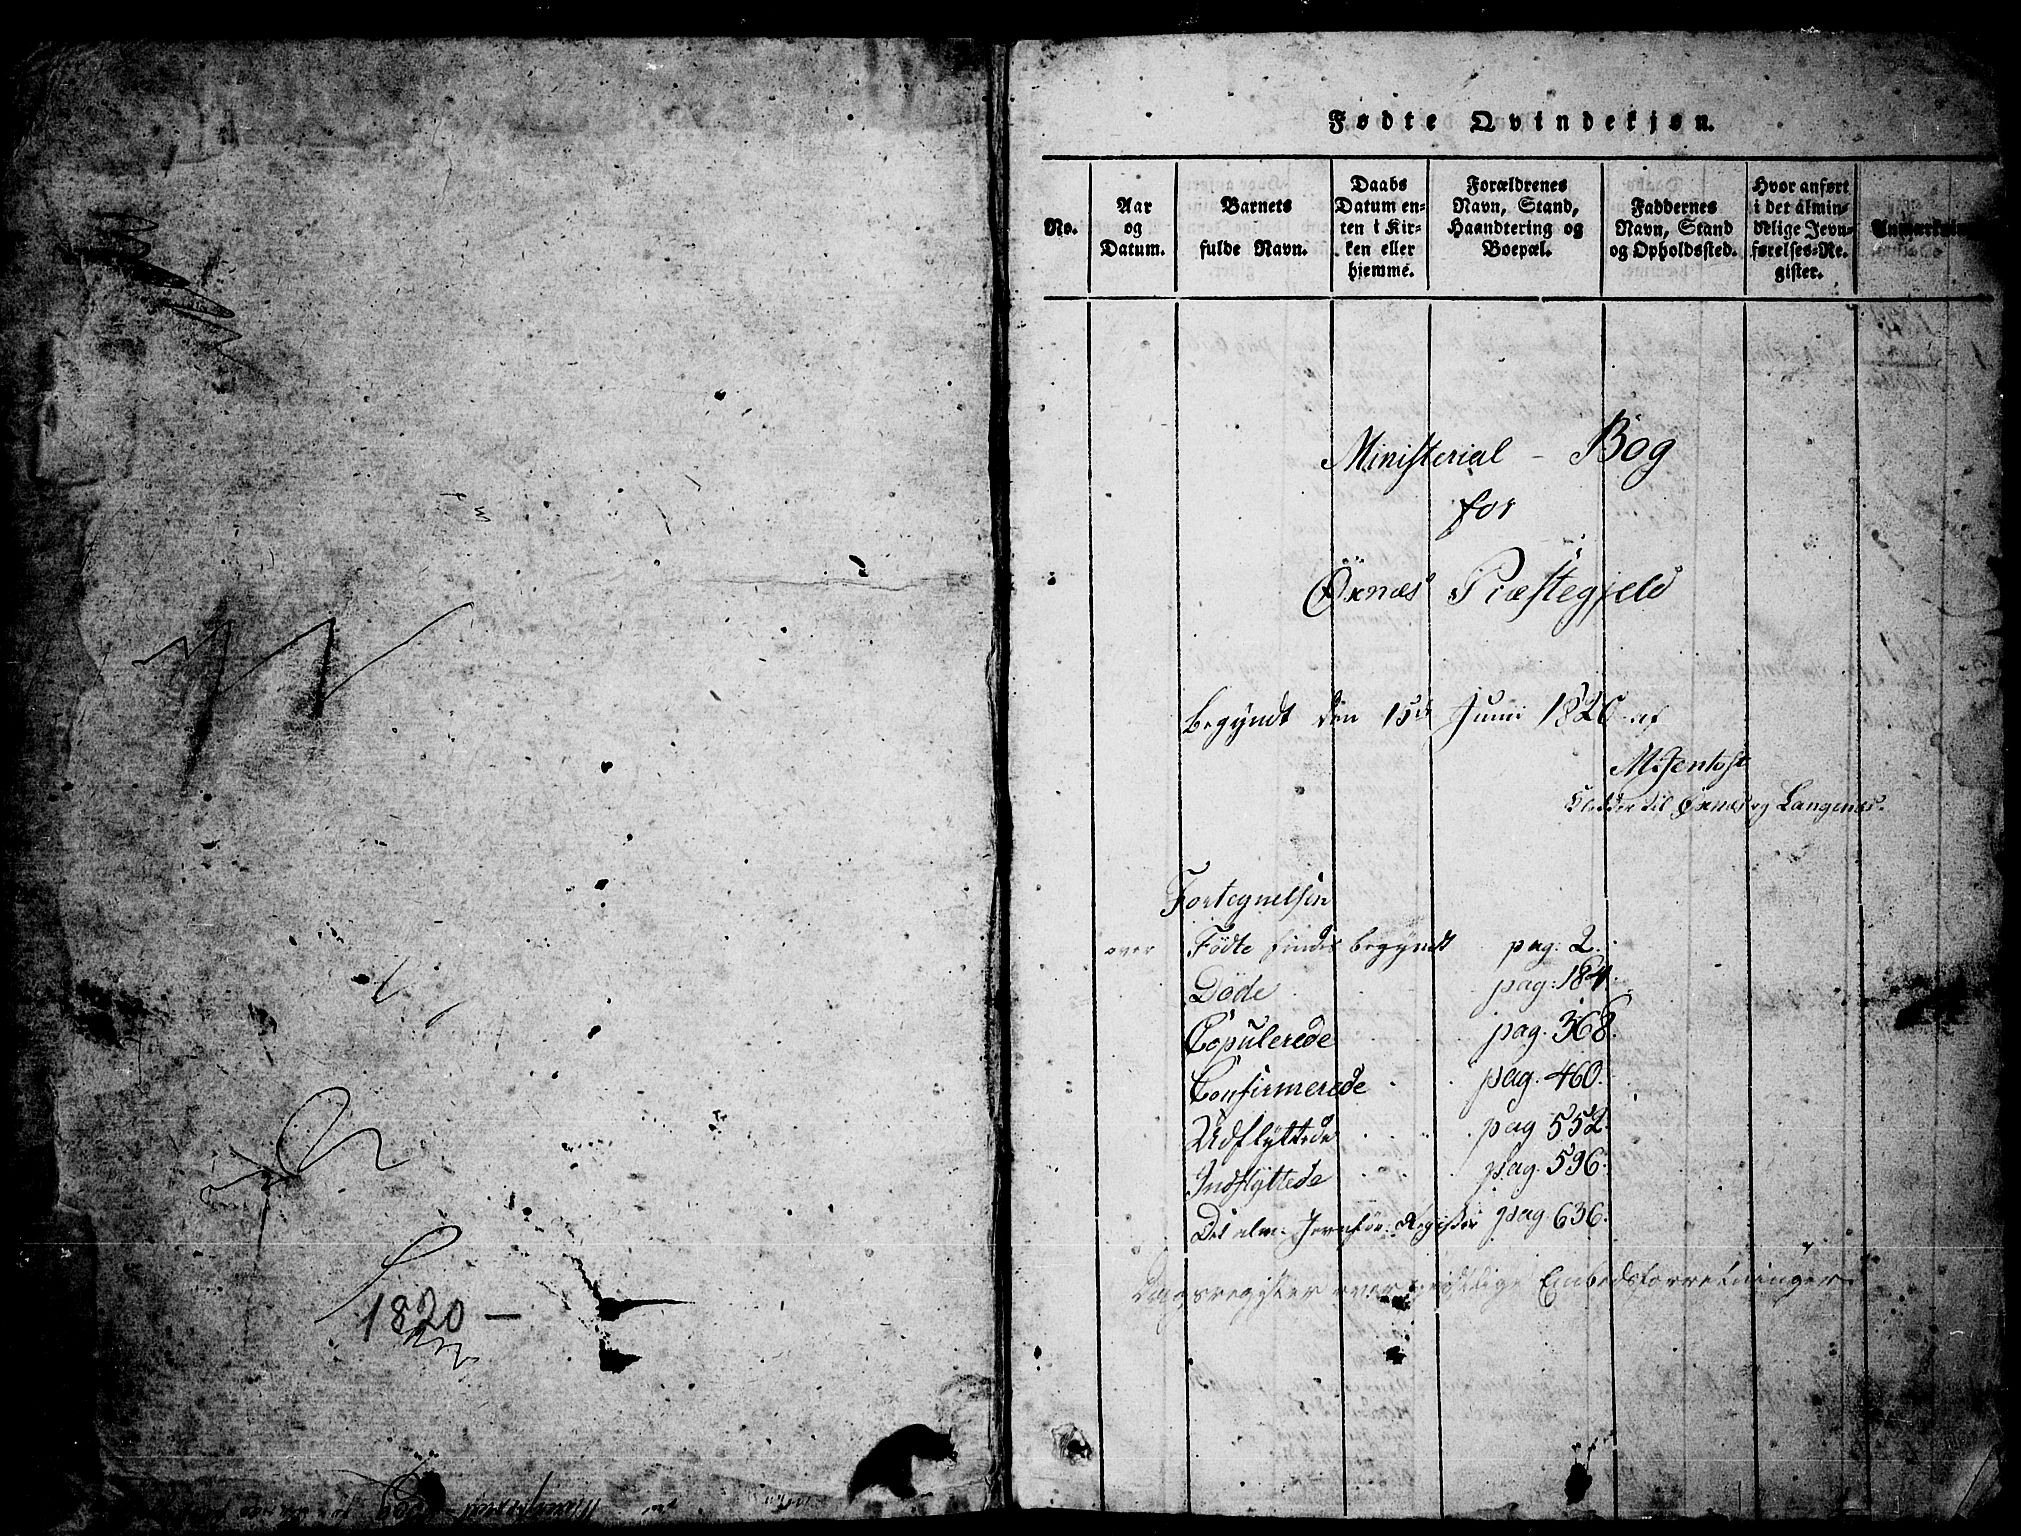 1820 —
Fødte Qvindekjøn.
No.
Aar og Datum.
Barnets fulde Navn.
Daabs Datum enten i Kirken eller hjemme.
Forældrenes Navn, Stand, Haandtering og Boepæl.
Faddernes Navn, Stand og Opholdssted.
Hvor anført i det almindelige Jevnførelses-Register.
Ministerial - Bog
for
Öxnæs Præstegjeld
begyndt den 15de Junii 1820 af
til Öxnæs og Langenæs.
Fortegnelsen
over Födte findes begyndt pag: 2.
Döde pag: 184.
Copulerede pag. 368.
Confirmerede pag. 460.
Udflyttede pag 552.
Indflyttede pag. 596.
Det alm. Jevnför. Register pag 636.
Dagsregister over geistlige Embedsforretninger